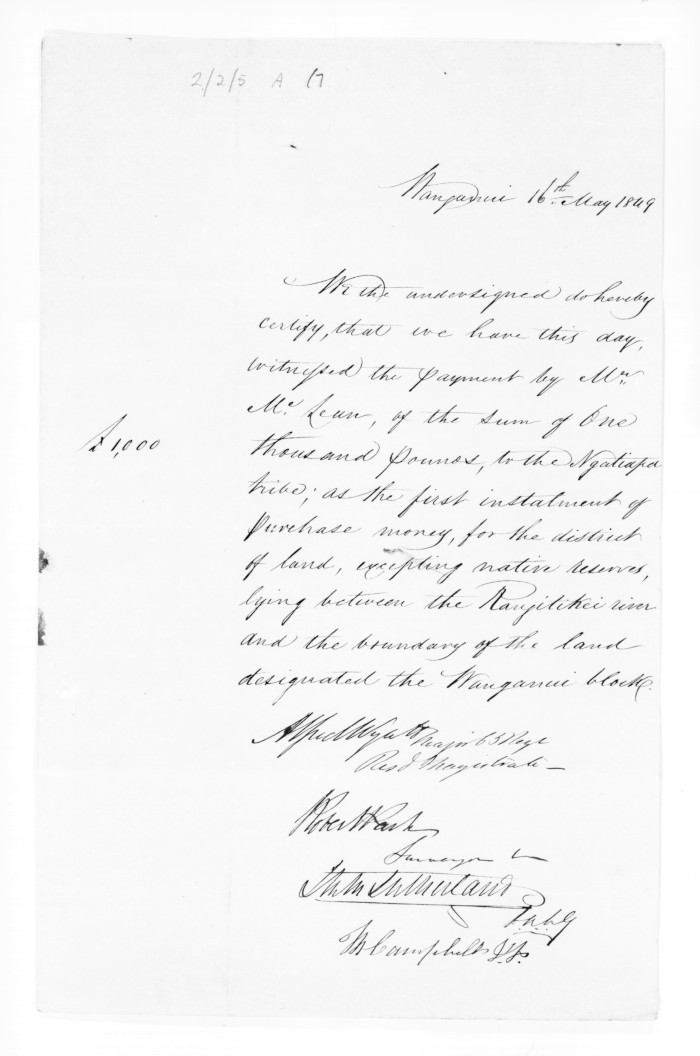 2/2/5 A 17
Wanganui 16th May 1849
We the undersigned do hereby
certify, that we have this day,
witnessed the payment by Mr.
£1,000
Mc Lean, of the sum of One
thousand pounds, to the Ngatiapa
tribe; as the first instalment of
purchase money, for the district
of land, excepting native reserves,
lying between the Rangitikei river
and the boundary of the land
designated the Wanganui block.
Alfred Wyatt Major 65 Regt
Resd Magistrate
Robert Park
Surveyor
Sutherland
M Campbell J.P.